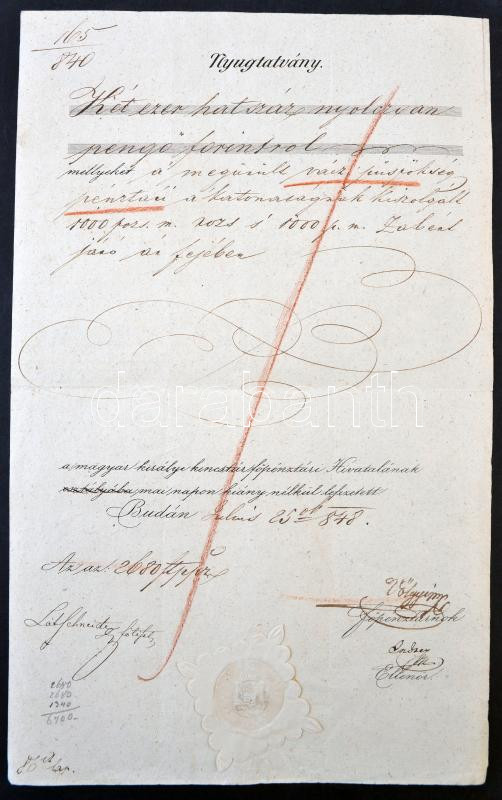 165
840
Nyugtatvány.
Két ezer hatszáz nyolczvan
pengő forintrol
mellyeket a' megürült váczi püspökség
pénztári a katonaságnak kiszolgált
1000 pozs. m. rozs s' 1000 p. m. Zabért
járó ár fejében
darabanth
a magyar királyi kincstár főpénztári Hivatalának
osztályába mai napon hiány nélkül lefizetett
Budán Julius 25 848.
Az az: 2680
főpénztárnok
Ellenőr
2680
2680
1340
6700